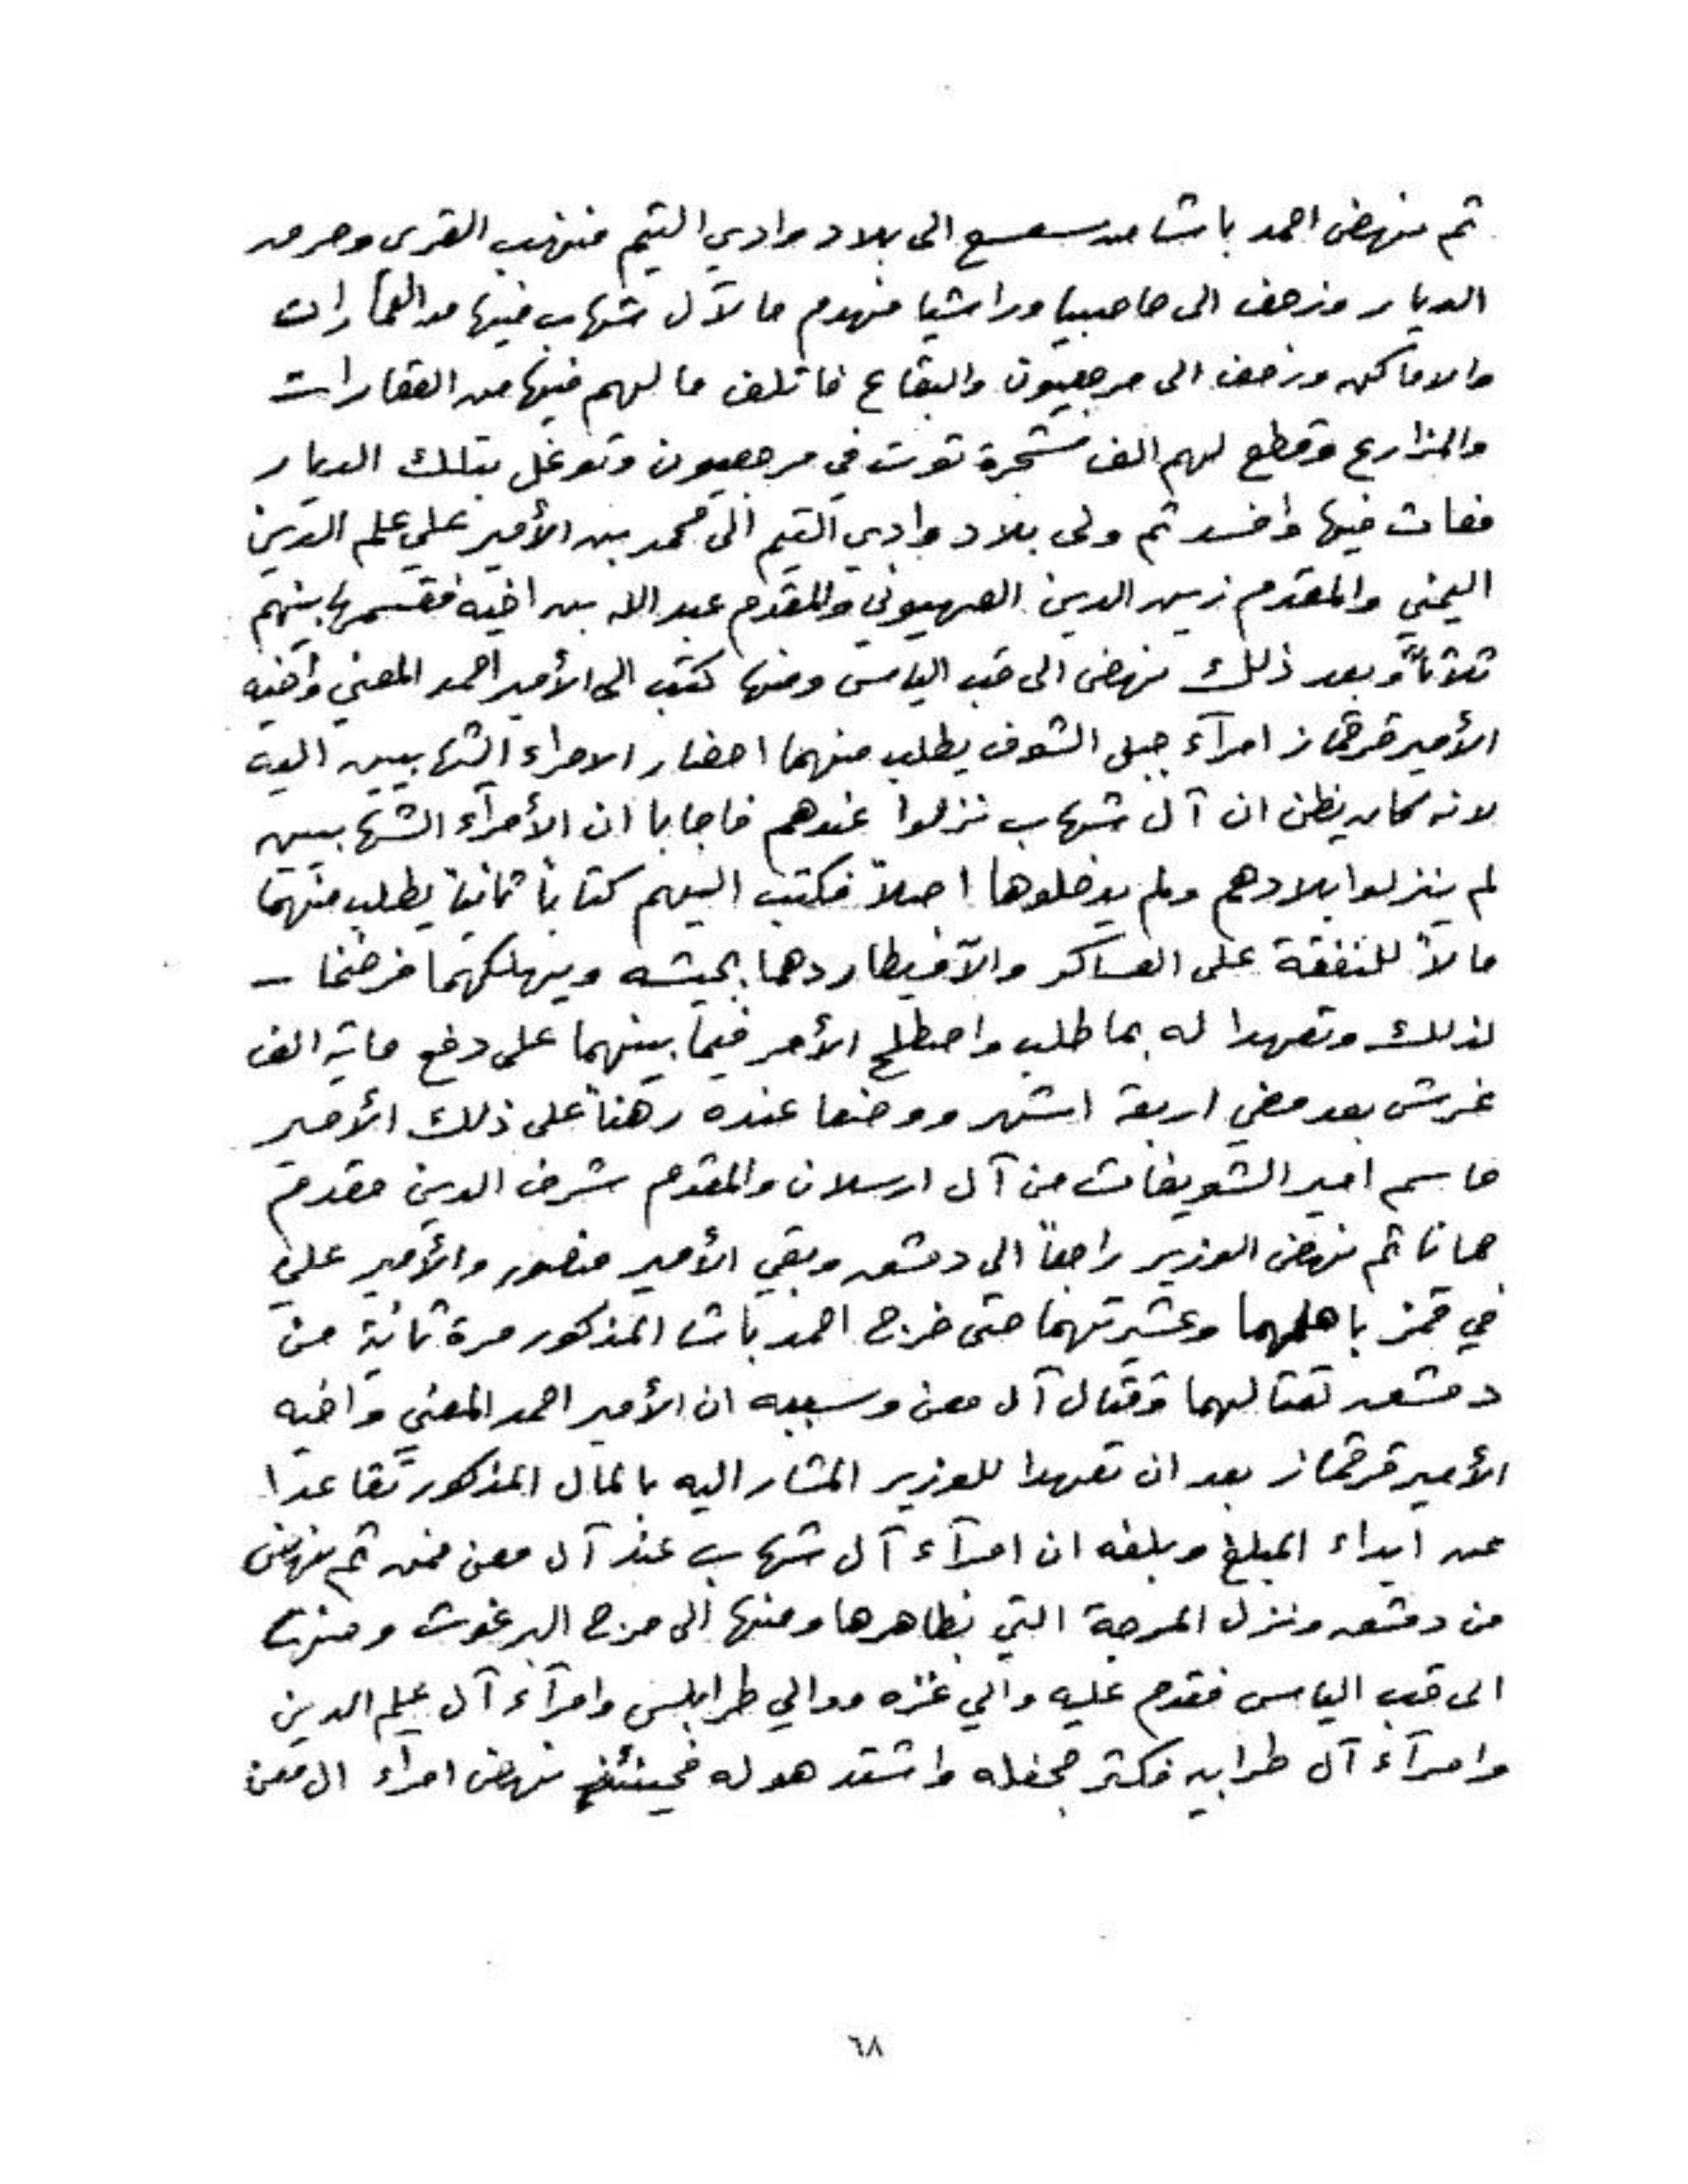 ثم نهض احمد باشا من سعسع الى بلاد وادي التيم فنهب القرى وحرق
الديار وزحف الى حاصبيا وراشيا فهدم ما لآل شهاب فيها من العمارات
والاماكن وزحف الى مرجعيون والبقاع فاتلف ما لهم فيها من العقارات
والمزارع وقطع لهم الف شجرة توت في مرجعيون وتوغل بتلك الديار
فعاث فيها وافسد ثم ولى بلاد وادي التيم الى محمد بن الأمير علي علم الدين
اليمني والمقدم زين الدين الصهيوني والمقدم عبد الله بن اخيه فقسمها بينهم
ثلاثاً وبعد ذلك نهض الى قب الياس ومنها كتب الى الأمير احمد المعني وأخيه
الأمير قرقماز امرآء جبل الشوف يطلب منهما احضار الامراء الشهابيين اليه
لانه كان يظن ان آل شهاب نزلوا عندهم فاجابا ان الأمرآء الشهابيين
لم ينزلوا بلادهم ولم يدخلوها اصلاً فكتب اليهم كتاباً ثانياً يطلب منهما
مالاً للنفقة على العساكر والآ فيطاردهما بجيشه ويهلكهما فرضخا –
لذلك وتعهدا له بما طلب واصطلح الأمر فيما بينهما على دفع ماية الف
غرش بعد مضي اربعة اشهر ووضعا عنده رهناً على ذلك الأمير
قاسم امير الشويفات من آل ارسلان والمقدم شرف الدين مقدم
حمانا ثم نهض الوزير راجعاً الي دمشق وبقي الأمير منصور والأمير علي
في قمز باهلهما وعشيرتهما حتى خرج احمد باشا المذكور مرة ثانية من
دمشق لقتالهما وقتال آل معن وسببه ان الأمير احمد المعني واخيه
الأمير قرقماز بعد ان تعهدا للوزير المشار اليه بالمال المذكور تقاعدا
عن ايداء المبلغ وبلغه ان امرآء آل شهاب عند آل معن فمن ثم نهض
من دمشق ونزل المرجة التي بظاهرها ومنها الى مرج البرغوث ومنها
الى قب الياس فقدم عليه والي غزه ووالي طرابلس وامرآء آل علم الدين
وامرآء آل طرابيه فكثر جحفله واشتد هوله فحينئذٍ نهض امراء ال معن
٦٨